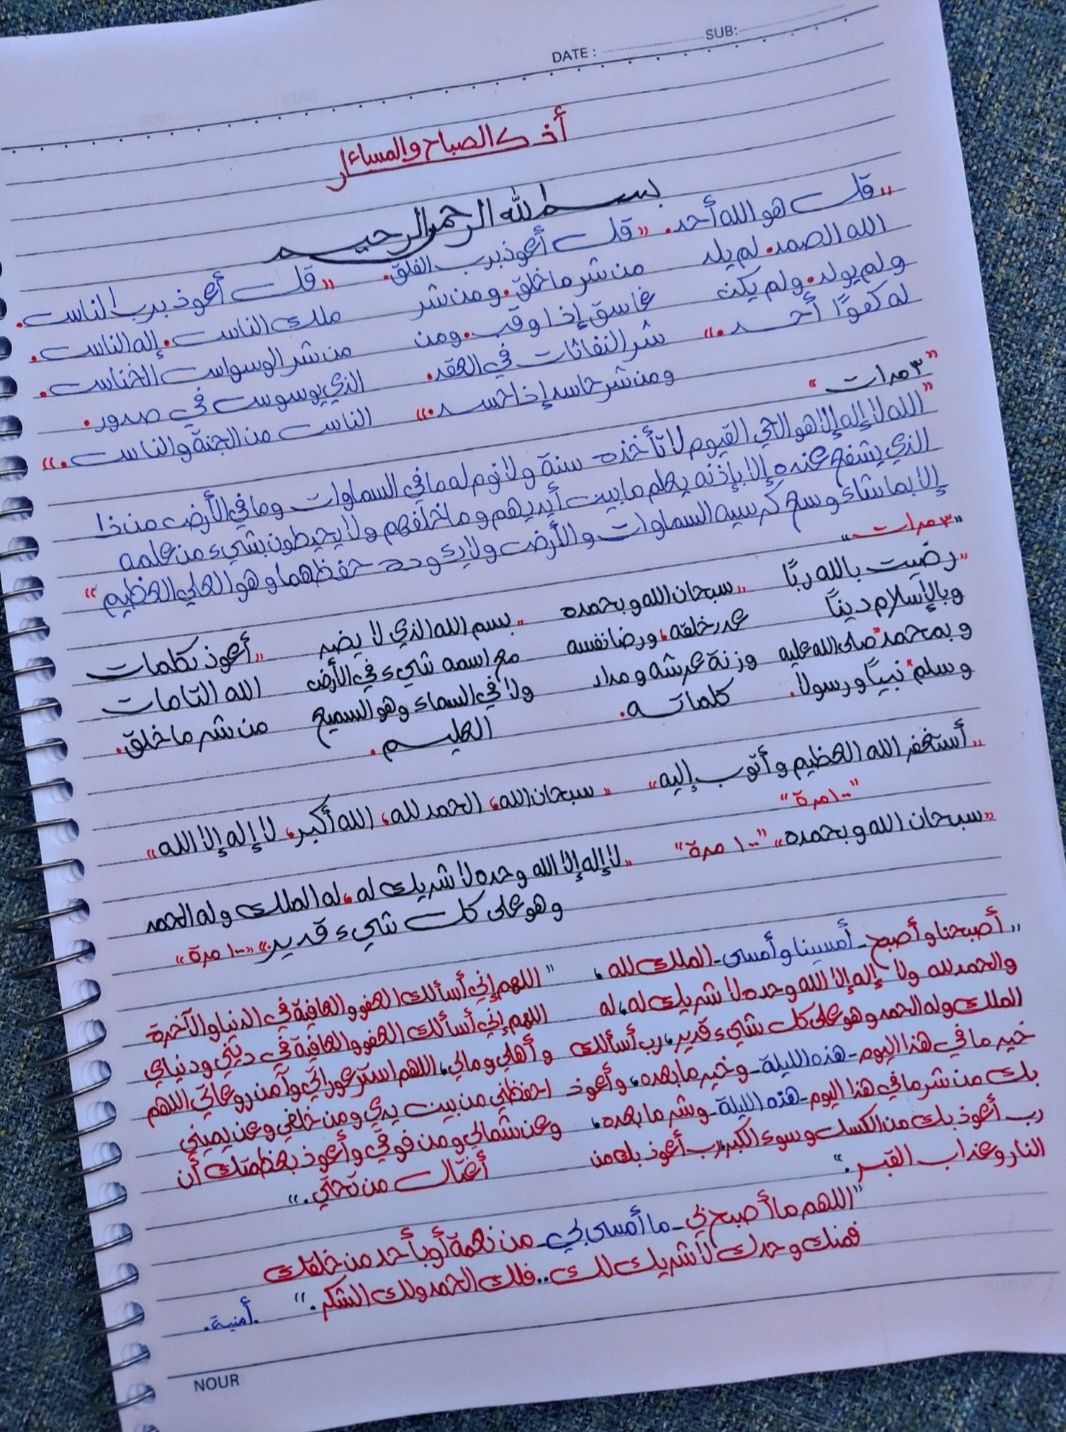 DATE : SUB:
أذكار الصباح والمساء
بسم الله الرحمن الرحيم
"قل هو الله أحد.
الله الصمد. لم يلد
ولم يولد. ولم يكن
له كفوًا أحد."
"قل أعوذ برب الفلق.
من شر ما خلق. ومن شر
غاسق إذا وقب. ومن
شر النفاثات في العقد.
ومن شر حاسد إذا حسد."
"قل أعوذ برب الناس.
ملك الناس. إله الناس.
من شر الوسواس الخناس.
الذي يوسوس في صدور.
الناس من الجنة والناس."
"٣ مرات"
"الله لا إله إلا هو الحي القيوم لا تأخذه سنة ولا نوم له ما في السماوات وما في الأرض من ذا
الذي يشفع عنده إلا بإذنه يعلم ما بين أيديهم وما خلفهم ولا يحيطون بشيء من علمه
إلا بما شاء وسع كرسيه السماوات والأرض ولا يؤوده حفظهما وهو العلي العظيم"
"٣ مرات"
"رضيت بالله ربًا
وبالإسلام دينًا
وبمحمد "صلى الله عليه
وسلم" نبيًا ورسولا.
"سبحان الله وبحمده
عدد خلقه، ورضا نفسه
وزنة عرشه ومداد
كلماته.
"بسم الله الذي لا يضر
مع اسمه شيء في الأرض
ولا في السماء وهو السميع
العليم.
"أعوذ بكلمات
الله التامات
من شر ما خلق.
"أستغفر الله العظيم وأتوب إليه" "سبحان الله، الحمد لله، الله أكبر، لا إله إلا الله"
"١٠٠ مرة"
"سبحان الله وبحمده" "١٠٠ مرة" "لا إله إلا الله وحده لا شريك له، له الملك وله الحمد
وهو على كل شيء قدير" "١٠٠ مرة"
"أصبحنا وأصبح - أمسينا وأمسى - الملك لله،
والحمد لله ولا إله إلا الله وحده لا شريك له، له
الملك وله الحمد وهو على كل شيء قدير، رب أسألك
خير ما في هذا اليوم - هذه الليلة - وخير ما بعده، وأعوذ
بك من شر ما في هذا اليوم - هذه الليلة - وشر ما بعده،
رب أعوذ بك من الكسل وسوء الكبر، رب أعوذ بك من
النار وعذاب القبر."
"اللهم إني أسألك العفو والعافية في الدنيا والآخرة
اللهم إني أسألك العفو والعافية في ديني ودنياي
وأهلي ومالي، اللهم استر عوراتي وآمن روعاتي اللهم
احفظني من بين يدي ومن خلفي وعن يميني
وعن شمالي ومن فوقي وأعوذ بعظمتك أن
أغتال من تحتي."
"اللهم ما أصبح بي - ما أمسى بي - من نعمة أو بأحد من خلقك
فمنك وحدك لا شريك لك.. فلك الحمد ولك الشكر."
.أمنية.
NOUR